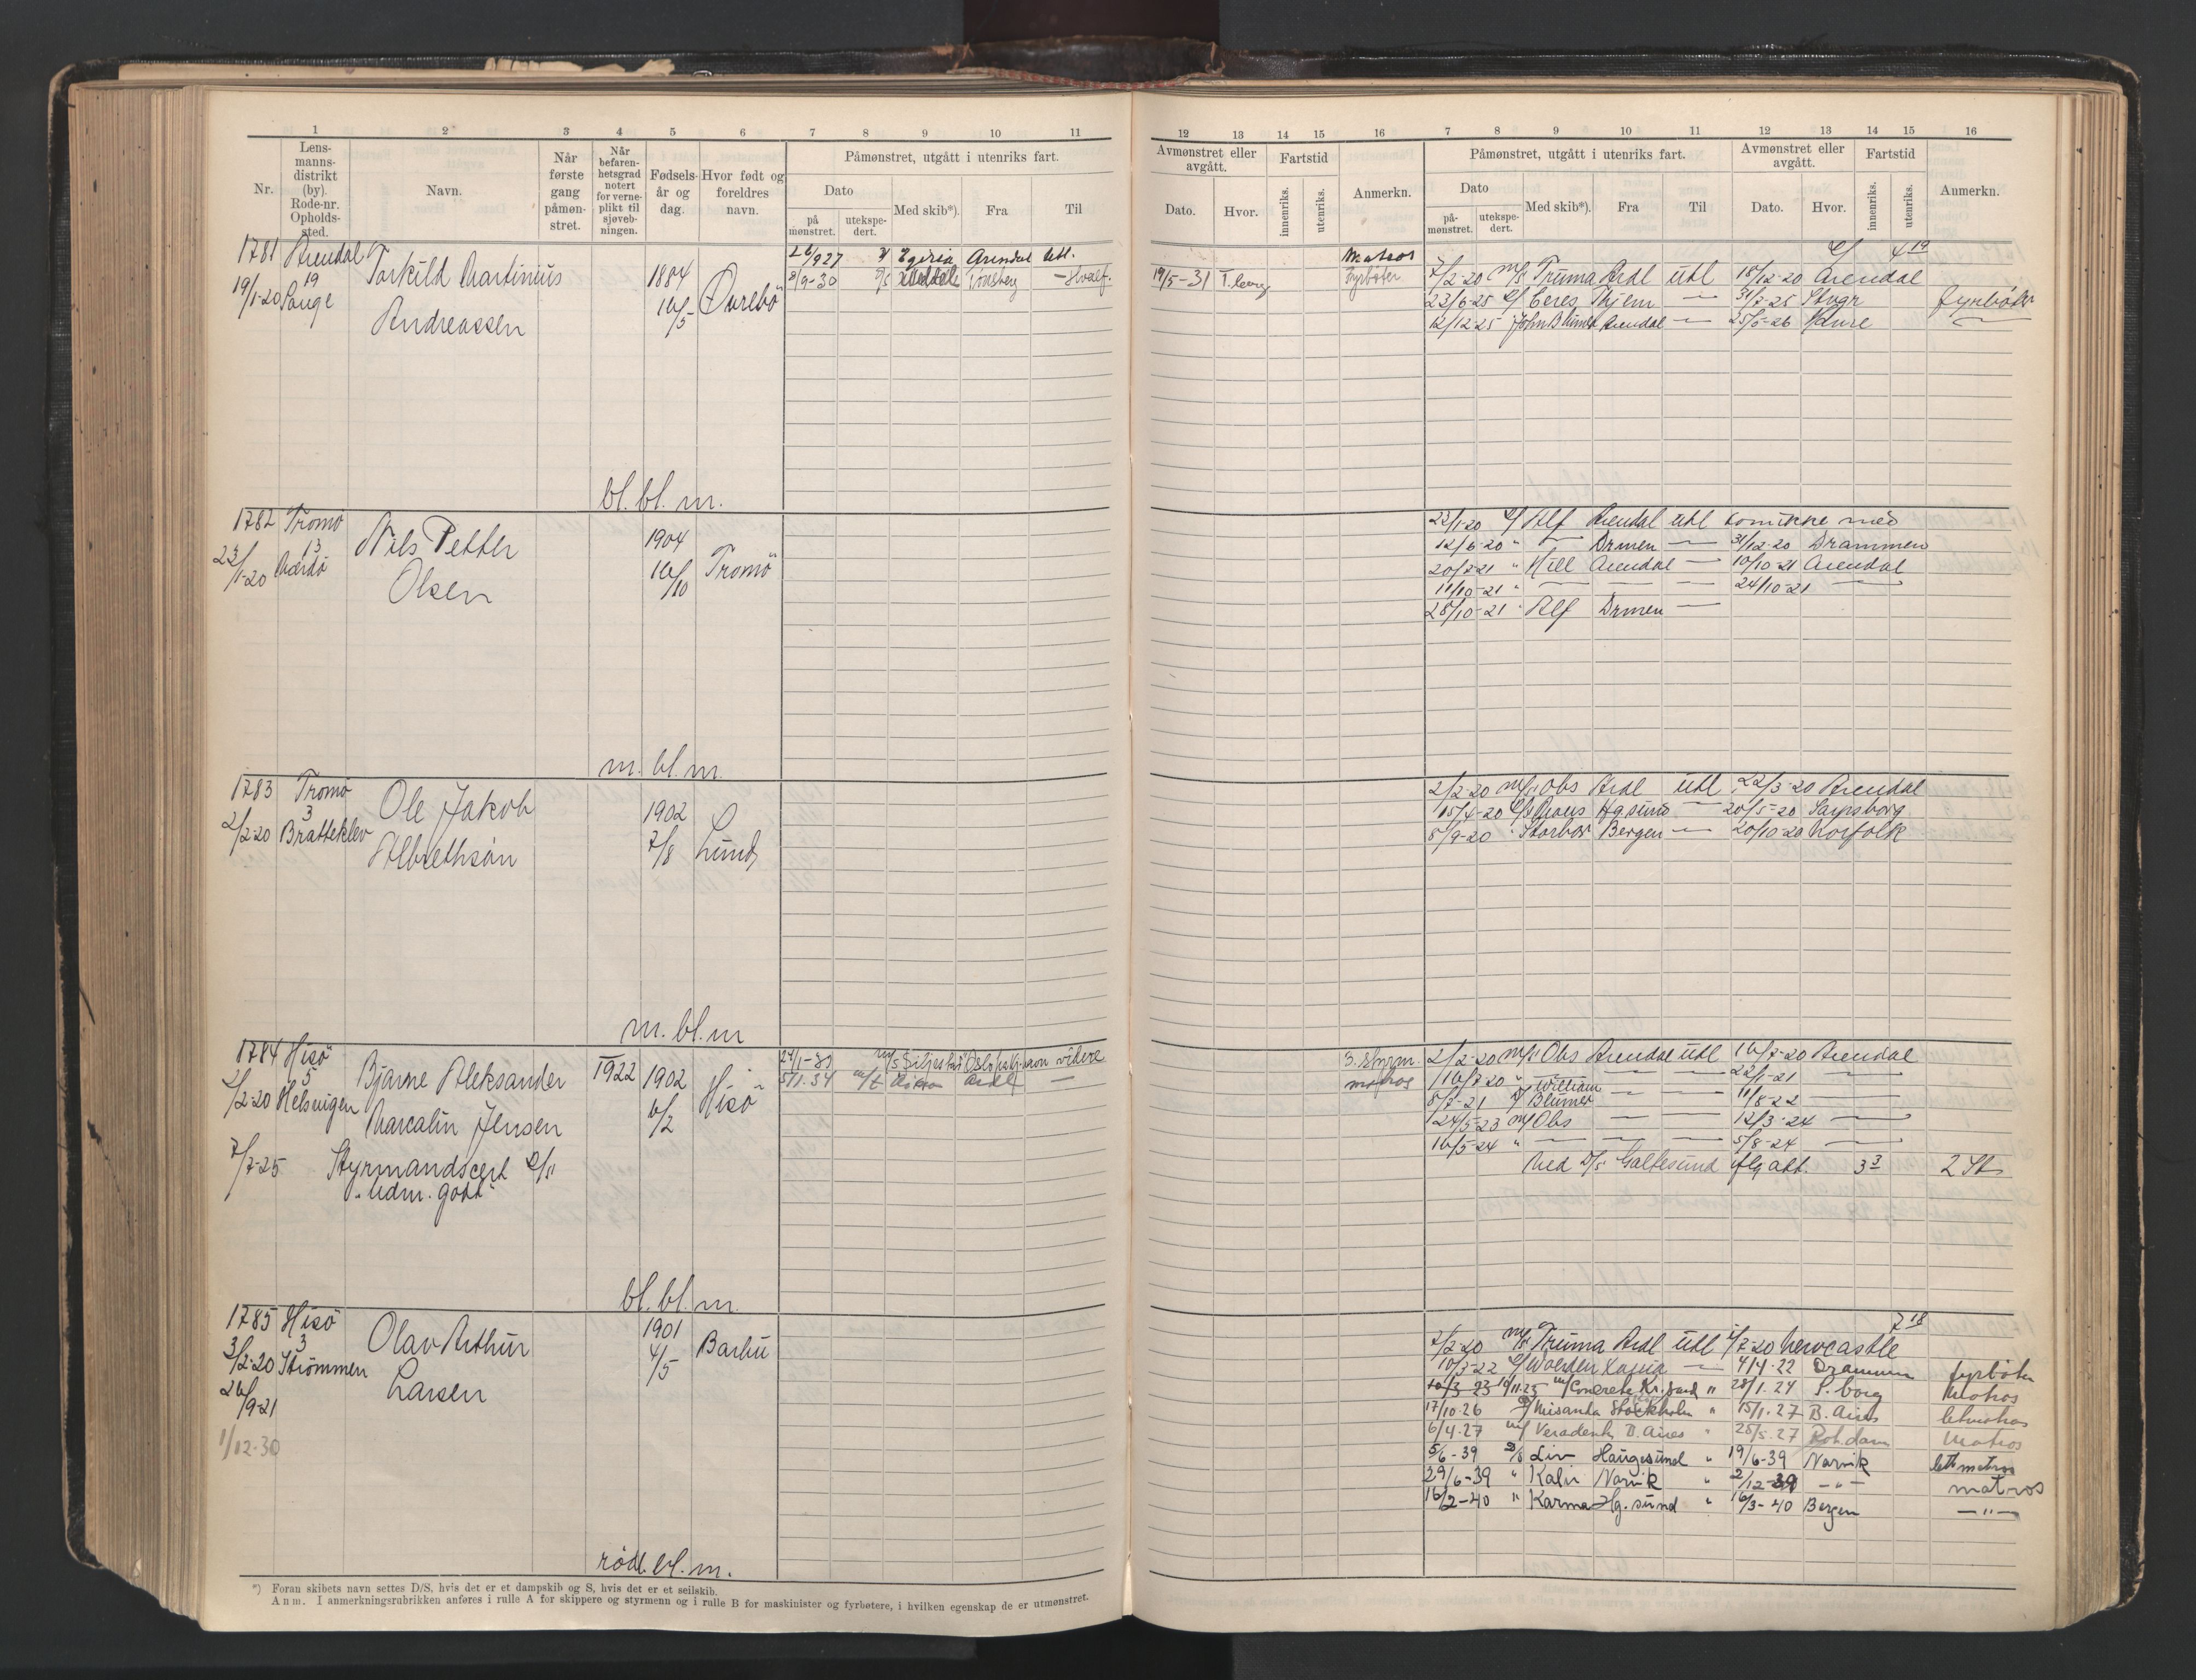 1 2 3 4 5 6 7 8 9 10 11
Nr.
Lens-
manns-
distrikt
(by).
Rode-nr.
Opholds-
sted.
Navn.
Når
første
gang
påmøn-
stret.
Når
befaren-
hetsgrad
notert
for verne-
plikt til
sjøveb-
ningen.
Fødsels-
år og
dag.
Hvor født og
foreldres
navn.
Påmønstret, utgått i utenriks fart.
Dato
på
mønstret.
utekspe-
dert.
Med skib*).
Fra
Til
1781 Arendal
19
19/1-20 Songe
Torkild Martinius
Andreassen
1884
16/5
Øvrebö
26/927 Egeria Arendal utl.
8/9-30 Tönsberg - Hvalf.
bl. bl. m.
1782 Tromö
13
23/1-20 Mærdö
Nils Petter
Olsen
1904
16/10
Tromö
m. bl. m.
1783 Tromö
3
2/2-20 Bratteklev
Ole Jakob
Albrethsön
1902
7/8
Lund
m. bl. m
1784 Hisö
5
2/2-20 Helsvigen
Bjarne Aleksander
Marcalin Jensen
7/7-25 Styrmandscert
"udm. godt"
1922 1902
6/2
Hisö
24/1-30 Oslo videre
5/1.34 m/t
bl. bl. m.
1785 Hisö
3
3/2-20 Strömmen
26/9-21
1/12-30
Olav Arthur
Larsen
1901
4/5
Barbu
röd. bl. m.
*) Foran skibets navn settes D/S, hvis det er et dampskib og S, hvis det er et seilskib.
Anm. I anmerkningsrubrikken anføres i rulle A for skippere og styrmenn og i rulle B for maskinister og fyrbøtere, i hvilken egenskap de er utmønstret.
12 13 14 15 16 7 8 9 10 11 12 13 14 15 16
Avmønstret eller
avgått.
Dato.
Hvor.
Fartstid
innenriks.
utenriks.
Anmerkn.
Påmønstret, utgått i utenriks fart.
Dato
på-
mønstret.
utekspe-
dert.
Med skib*).
Fra
Til
Avmønstret eller
avgått.
Dato.
Hvor.
Fartstid
innenriks.
utenriks.
Anmerkn.
Matros
19/5-31 T.berg Fyrböter
7/2-20 m/s Truma Ardl utl 18/12-20 Arendal
23/6-25 Ceres Thjem — 31/7-25 Stvgr fyrböter
12/12-25 John Blumer Arendal — 25/5-26 Havre —
23/1-20 Alf Arendal utl kom ikke med
12/6-20 " — Drmen — 31/12-20 Drammen
20/7-21 " Hill Arendal — 10/10-21 Arendal
11/10-21 " — — — 24/10-21 —
28/10-21 " Alf Drmen —
2/2-20 Obs Ardl utl 22/3-20 Arendal
15/4-20 Hg.sund — 20/5-20 Sarpsborg
8/9-20 " Storbas Bergen — 20/10-20 Norfolk
3. styrm.
matros
2/2-20 Obs Arendal utl 16/7-20 Arendal
16/7-20 " — — — 22/1-21 —
8/7-21 William
Blumer — — 11/8-22 —
24/5-23 Obs — — 12/3-24 —
16/5-24 " — — — 5/8-24 —
Med D/S Galtesund iflg att. 3 3 2 St
7 18
2/2-20 m/s Truma Ardl utl 2/7-20 Newcastle
10/3-22 — 4/4-22 Drammen fyrböter
10/3-23 19/11.23 Concrete Kr. sand " 28/1.24 S.borg Matros
17/10-26 Misanta Stockholm " 15/1.27 B. Aires letmatros
6/4-27 B. Aires " 28/5.27 Rotdam Matros
5/6-39 D/S Liv Haugesund " 19/6-39 Narvik lettmatros
29/6-39 " Kalir Narvik " 2/12-39 -"- matros
16/2-40 " Karma Hg.sund " 16/3-40 Bergen -"-